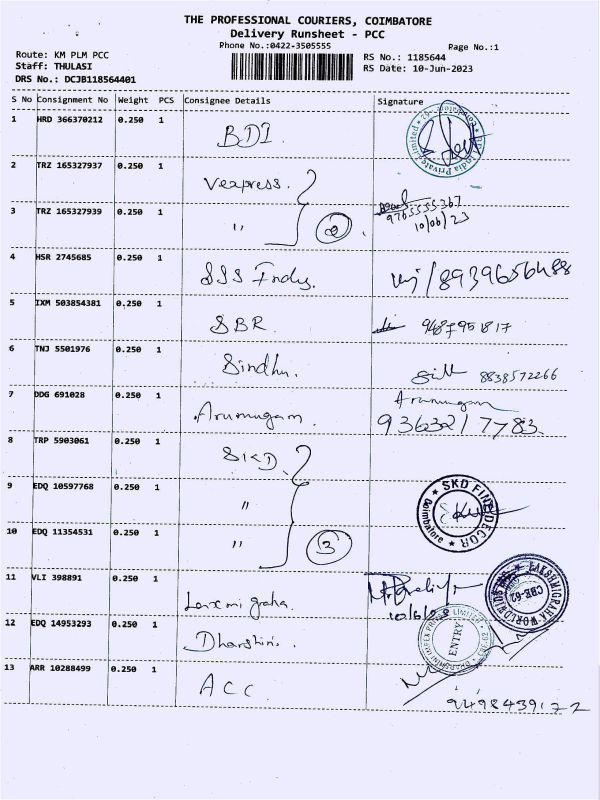 THE PROFESSIONAL COURIERS, COIMBATORE
Delivery Runsheet - PCC
Phone No.:0422-3505555
Page No.:1
Route: KM PLM PCC
Staff: THULASI
DRS No.: DCJB118564401
RS No.: 1185644
RS Date: 10-Jun-2023
S No Consignment No Weight PCS Consignee Details Signature
1 HRD 366370212 0.250 1 BDI
2 TRZ 165327937 0.250 1 Vexpress.
3 TRZ 165327939 0.250 1 " 2
9765555367
10/06/23
4 HSR 2745685 0.250 1 SSS Indu. 8939656488
5 IXM 503854381 0.250 1 SBR. 9487951817
6 TNJ 5501976 0.250 1 Sindhu. 8838572266
7 DDG 691028 0.250 1 Arumugam. Arumugam
9363217783.
8 TRP 5903061 0.250 1 SKD.
9 EDQ 10597768 0.250 1 " SKD FINE DECOR Coimbatore
10 EDQ 11354531 0.250 1 " 3
11 VLI 398891 0.250 1 Laxmi graha.
CBE-62
12 EDQ 14953293 0.250 1 Dharshini. ENTRY
13 ARR 10288499 0.250 1 ACC
9498439172